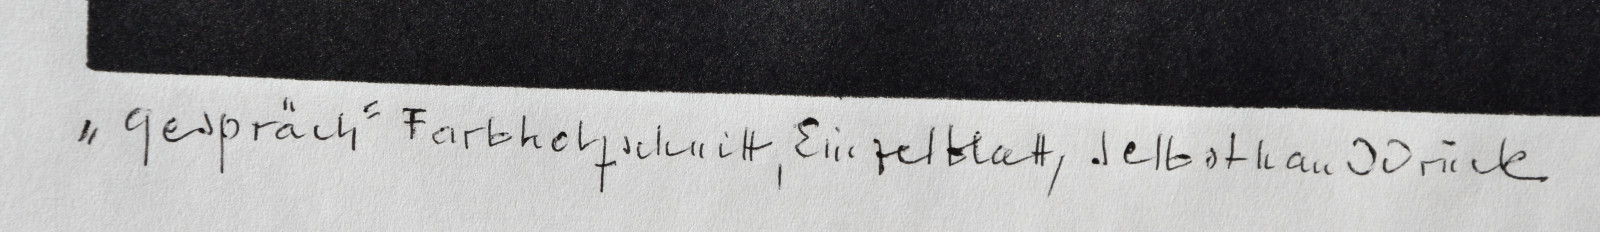 „Gespräch“ Farbholzschnitt, Einzelblatt, Selbsthanddruck